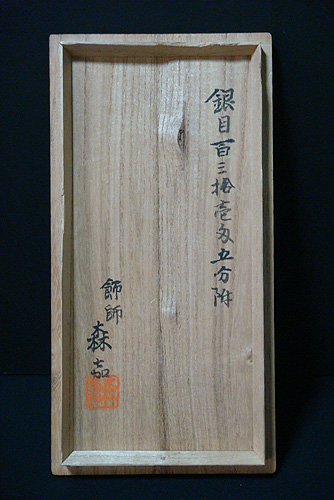 銀目百三拾壱匁五分附
飾師
森嘉